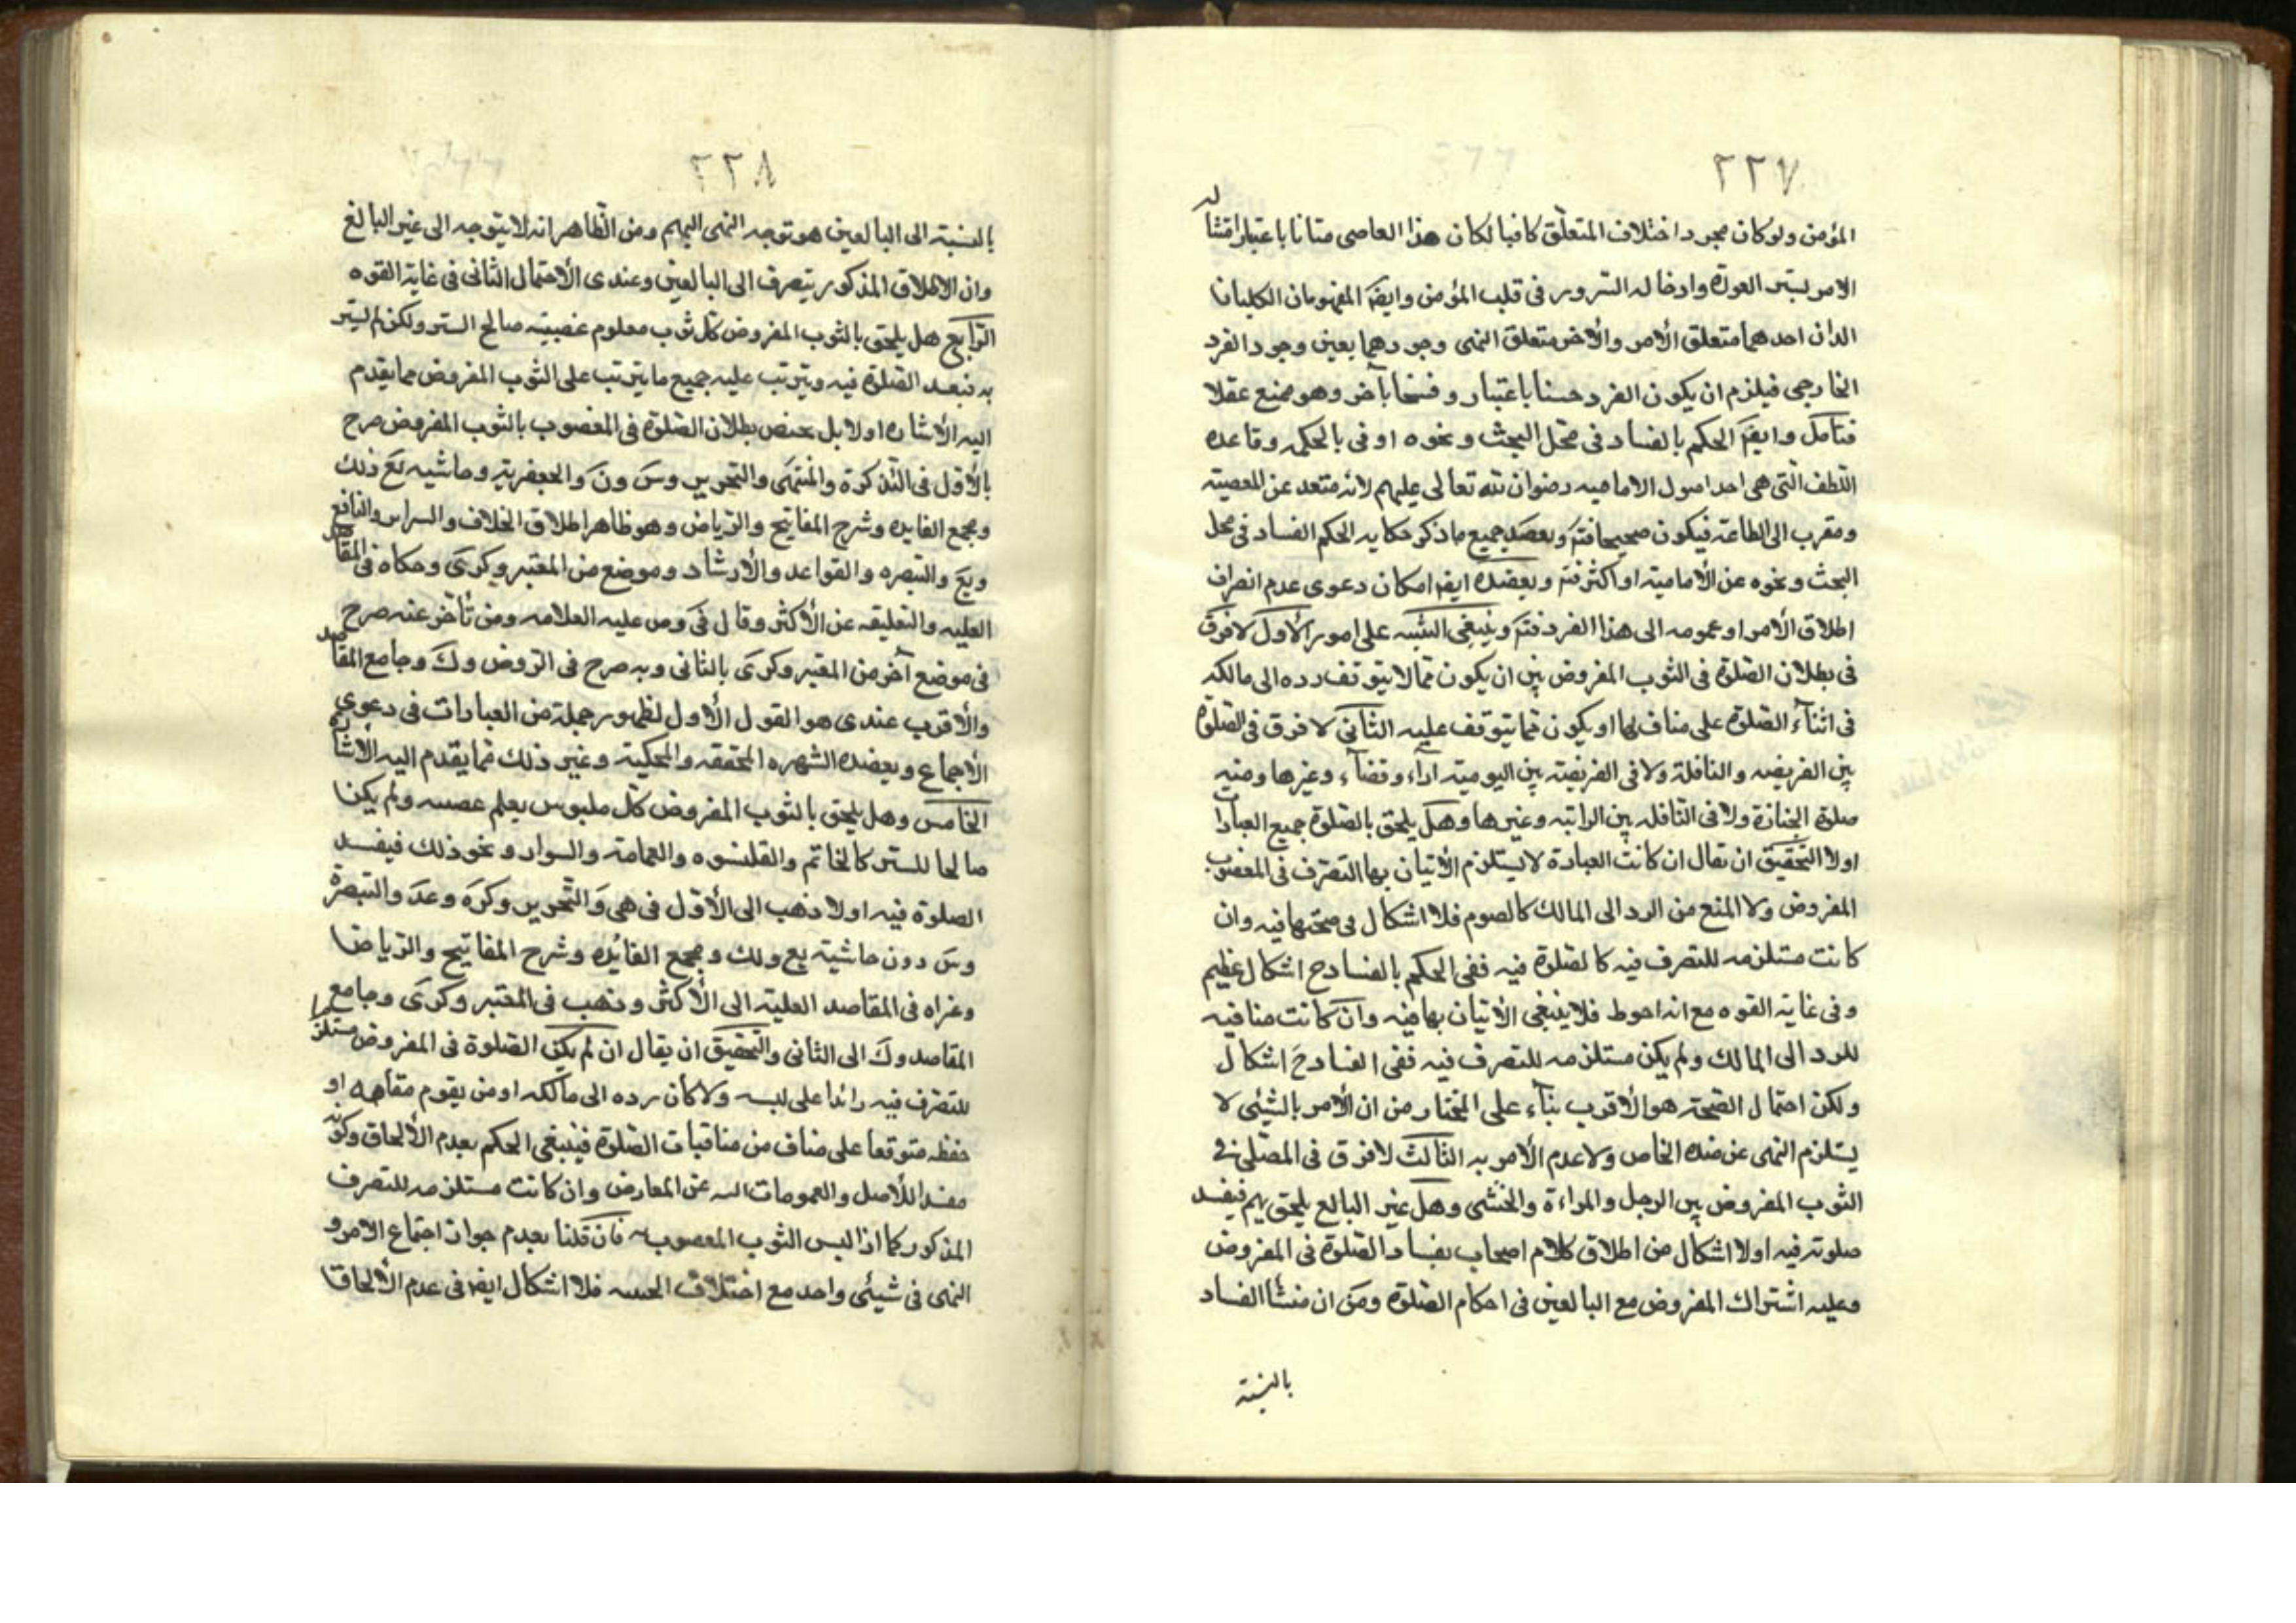 ٢٢٧
المؤمن ولو كان مجرد اختلاف المتعلّق كافيا لكان هذا العاصى متانا باعتبار امتثاله
الامر بستر العورة وادخاله السّرور فى قلب المؤمن وايضَا المفهومان الكليان
الذان احدهما متعلق الأمر والأخر متعلق النهى وجودهما بعين وجود الفرد
الخارجى فيلزم ان يكون الفرد حسنا باعتبار و قبيحا بآخر وهو ممتنع عقلا
فتامل وايضَا الحكم بالفساد فى محّل البحث ونحوه اوفى بالحكمه وقاعده
اللّطف الّتى هى احد اصول الاماميه رضوان الله تعالى عليهم لأنه متعد عن المعصيته
ومقرب الى الطاعة فيكون صحيحا فتم ويعضد جميع ما ذكر حكايه الحكم الفساد فى محل
البحث ونحوه عن الأماميته او اكثر فتم ويعضده ايضا امكان دعوى عدم انصراف
اطلاق الأمر او عمومه الى هذا الفرد فتم وينبغى التنبيه على امور الأول لا فرق
فى بطلان الصّلوة فى الثوب المفروض بين ان يكون ممّا لا يتوقف رده الى مالكه
فى اثنآء الصّلوة على مناف لها او يكون ممّا يتوقف عليه الثانى لا فرق فى الصّلوة
بين الفريضه والنافلة ولا فى الفريضته بين اليوميته ادآء وقضآء وغيرها ومنه
صلوة الجنازة ولا فى النّافله بين الراتبه وغيرها وهل يلحق بالصّلوة جميع العبادات
اولا التّحقيق ان يقال ان كانت العبادة لا يستلزم الأتيان بها التصّرف فى المغصوب
المفروض ولا المنع من الرد الى المالك كالصوم فلا اشكال فى صحتها فيه وان
كانت مستلزمه للتصرف فيه كالصّلوة فيه ففى الحكم بالفساد ح اشكال عظيم
وفى غاية القوه مع انه احوط فلا ينبغى الأتيان بها فيه وان كانت منافيه
للرد الى المالك ولم يكن مستلزمه للتصرف فيه ففى الفساد ح اشكال
ولكن احتمال الصّحة هو الأقرب بنآء على المختار من ان الأمر بالشّيئى لا
يستلزم النهى عن ضده الخاص ولا عدم الأمر به الثالث لا فرق فى المصّلى فى
الثوب المفروض بين الرجل والمراءة والخنثى وهل غير البالع يلحق بهم فيفسد
صلوته فيه اولا اشكال من اطلاق كلام اصحاب بفساد الصّلوة فى المفروض
وعليه اشتراك المفروض مع البالغين فى احكام الصّلوة ومن ان منشأ الفساد
بالنسبته
٢٢٨
بالنسبته الى البالغين هو توجه النهى اليهم ومن الظاهر انه لا يتوجه الى غير البالغ
وان الاطلاق المذكور يتصرف الى البالغين وعندى الأحتمال الثانى فى غاية القوه
الرّابع هل يلحق بالثوب المفروض كل ثوب معلوم غصبيته صالح الستر ولكن لم يستر
به فيفسد الصّلوة فيه ويترتب عليه جميع ما يترتب على الثوب المفروض مما يقدم
اليه الأشاره اولا بل يختص بطلان الصّلوة فى المغصوب بالثوب المفروض صرح
بالأوّل فى التّذكرة والمنتهى والتحرير وس ون والجعفرية وحاشيه يع ذلك
ومجمع الفايده وشرح المفاتيح والرّياض وهو ظاهر اطلاق الخلاف والسرابر والنافع
ويع والتبصره والقواعد والأرشاد وموضع من المعتبر وكرى وحكاه فى المقاصد
العليه والتعليقه عن الأكثر وقال فى وض عليه العلامه ومن تأخّر عنه صرح
فى موضع آخر من المعتبر وكرى بالثانى وبه صرح فى الروض وك وجامع المقاصد
والأقرب عندى هو القول الأول لظهور جملة من العبارات فى دعوى
الأجماع ويعضده الشهره المحققه والمحكية وغير ذلك ممّا يقدم اليه الأشاره
الخامس وهل يلحق بالثوب المفروض كلّ ملبوس يعلم غصبيه ولم يكن
صالحا للستر كالخاتم والقلنسوه والعمامة والسوار ونحو ذلك فيفسد
الصلوة فيه اولا ذهب الى الأوّل فى هى والتّحرير وكره وعد والتبصرة
وس دون حاشيته يع ولك ومجمع الفائده وشرح المفاتيح والرّياض
وعزاه فى المقاصد العليه الى الأكثر وذهب فى المعتبر وكرى وجامع
المقاصد وك الى الثانى والتحقيق ان يقال ان لم يكن الصّلوة فى المفروض مستلزما
للتصّرف فيه زائدا على لبسه ولا كان رده الى مالكه او من يقوم مقامه او
حفظه متوقعا على مناف من منافيات الصّلوة فينبغى الحكم بعدم الألحاق وكونه
مفسدا للأصل والعمومات عن المعارض وان كانت مستلزمه للتصرف
المذكور كما اذا لبس الثوب المغصوب فان قلنا بعدم جواز اجتماع الامر و
النهى فى شيئى واحد مع اختلاف الجهته فلا اشكال ايضا فى عدم الألحاق